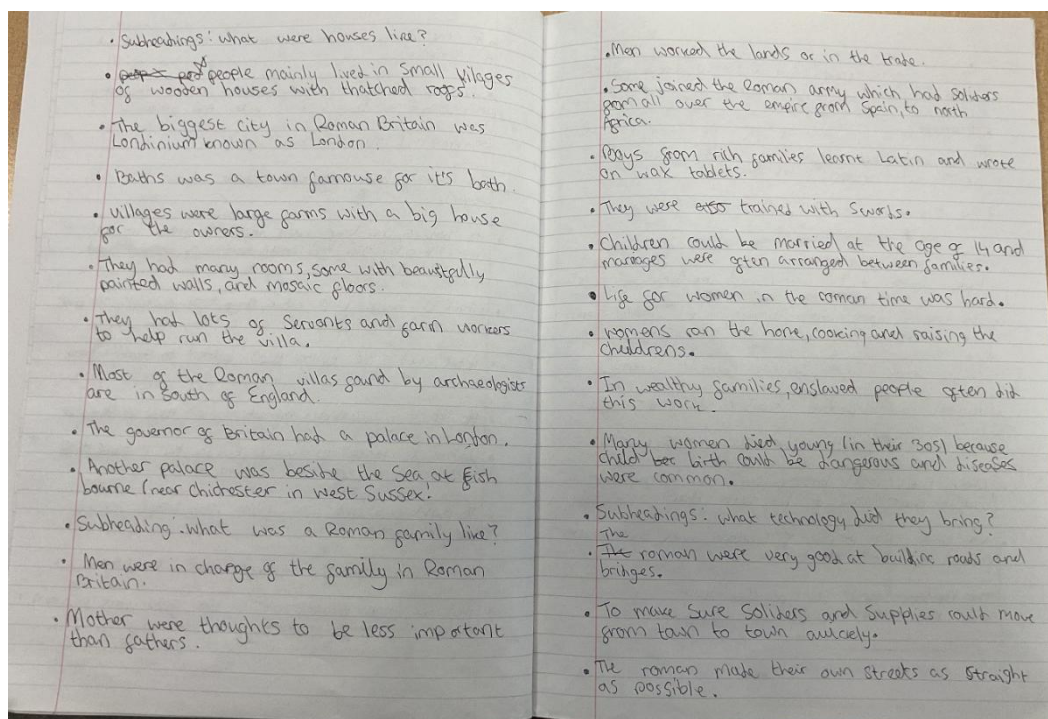 • Subheadings: what were houses like?
• people mainly lived in small vilages
of wooden houses with thatched roofs.
• The biggest city in Roman Britain was
Londinium known as London.
• Baths was a town famouse for it's bath.
• villages were large farms with a big house
for the owners.
• They had many rooms, some with beautifully
painted walls, and mosaic floors.
• They had lots of servants and farm workers
to help run the villa.
• Most of the Roman villas found by archaeologists
are in South of England.
• The governor of Britain had a palace in London.
• Another palace was beside the Sea, at Fish
bourne (near chichester in west Sussex.
• Subheading: what was a Roman family like?
• Men were in charge of the family in Roman
Britain.
• Mother were thoughts to be less important
than fathers.
• Men worked the lands or in the trade.
• Some joined the Roman army which had soliders
from all over the empire from Spain, to north
Africa.
• Boys from rich families learnt Latin and wrote
on wax tablets.
• They were trained with Swords.
• Children could be married at the age of 14 and
marages were often arranged between families.
• Life for women in the roman time was hard.
• womens ran the home, cooking and raising the
childrens.
• In wealthy families, enslaved people often did
this work.
• Many women died young (in their 30s) because
child birth could be dangerous and diseases
were common.
• Subheadings: what technology did they bring?
The
• roman were very good at building roads and
bringes.
• To make sure Soliders and supplies could move
from town to town
• The roman made their own streets as straight
as possible.